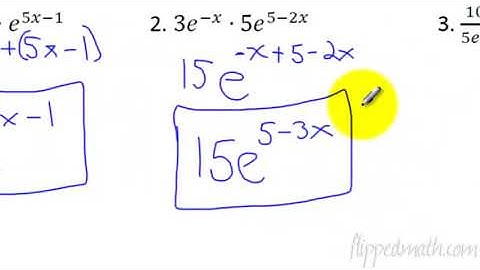 · e^{5x-1}
+(5x-1)
x-1
2. 3e^{-x} · 5e^{5-2x}
15e^{-x+5-2x}
15e^{5-3x}
3. 10
5e
flippedmath.com